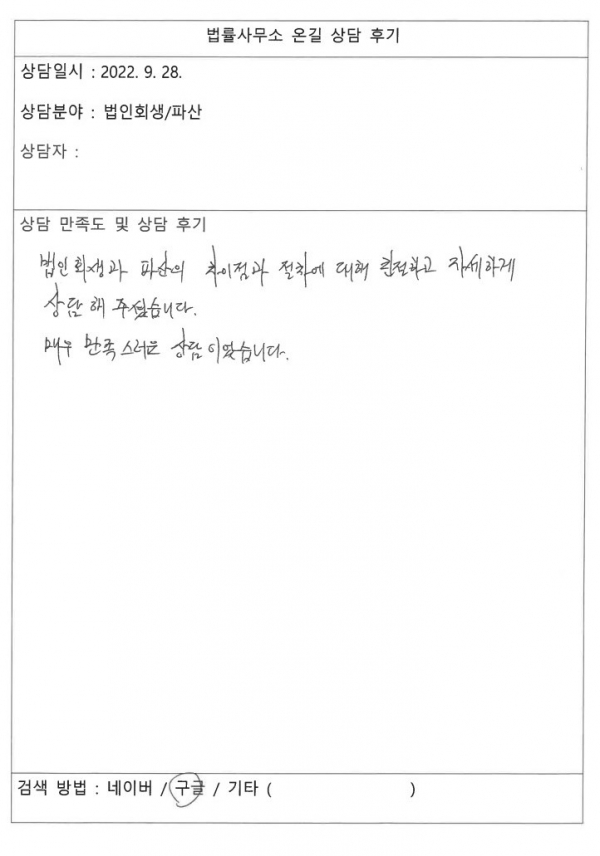 법률사무소 온길 상담 후기
상담일시 : 2022. 9. 28.
상담분야 : 법인회생/파산
상담자 :
상담 만족도 및 상담 후기
법인회생과 파산의 차이점과 절차에 대해 친절하고 자세하게
상담해 주셨습니다.
매우 만족스러운 상담이었습니다.
검색 방법 : 네이버 / 구글 / 기타 ( )